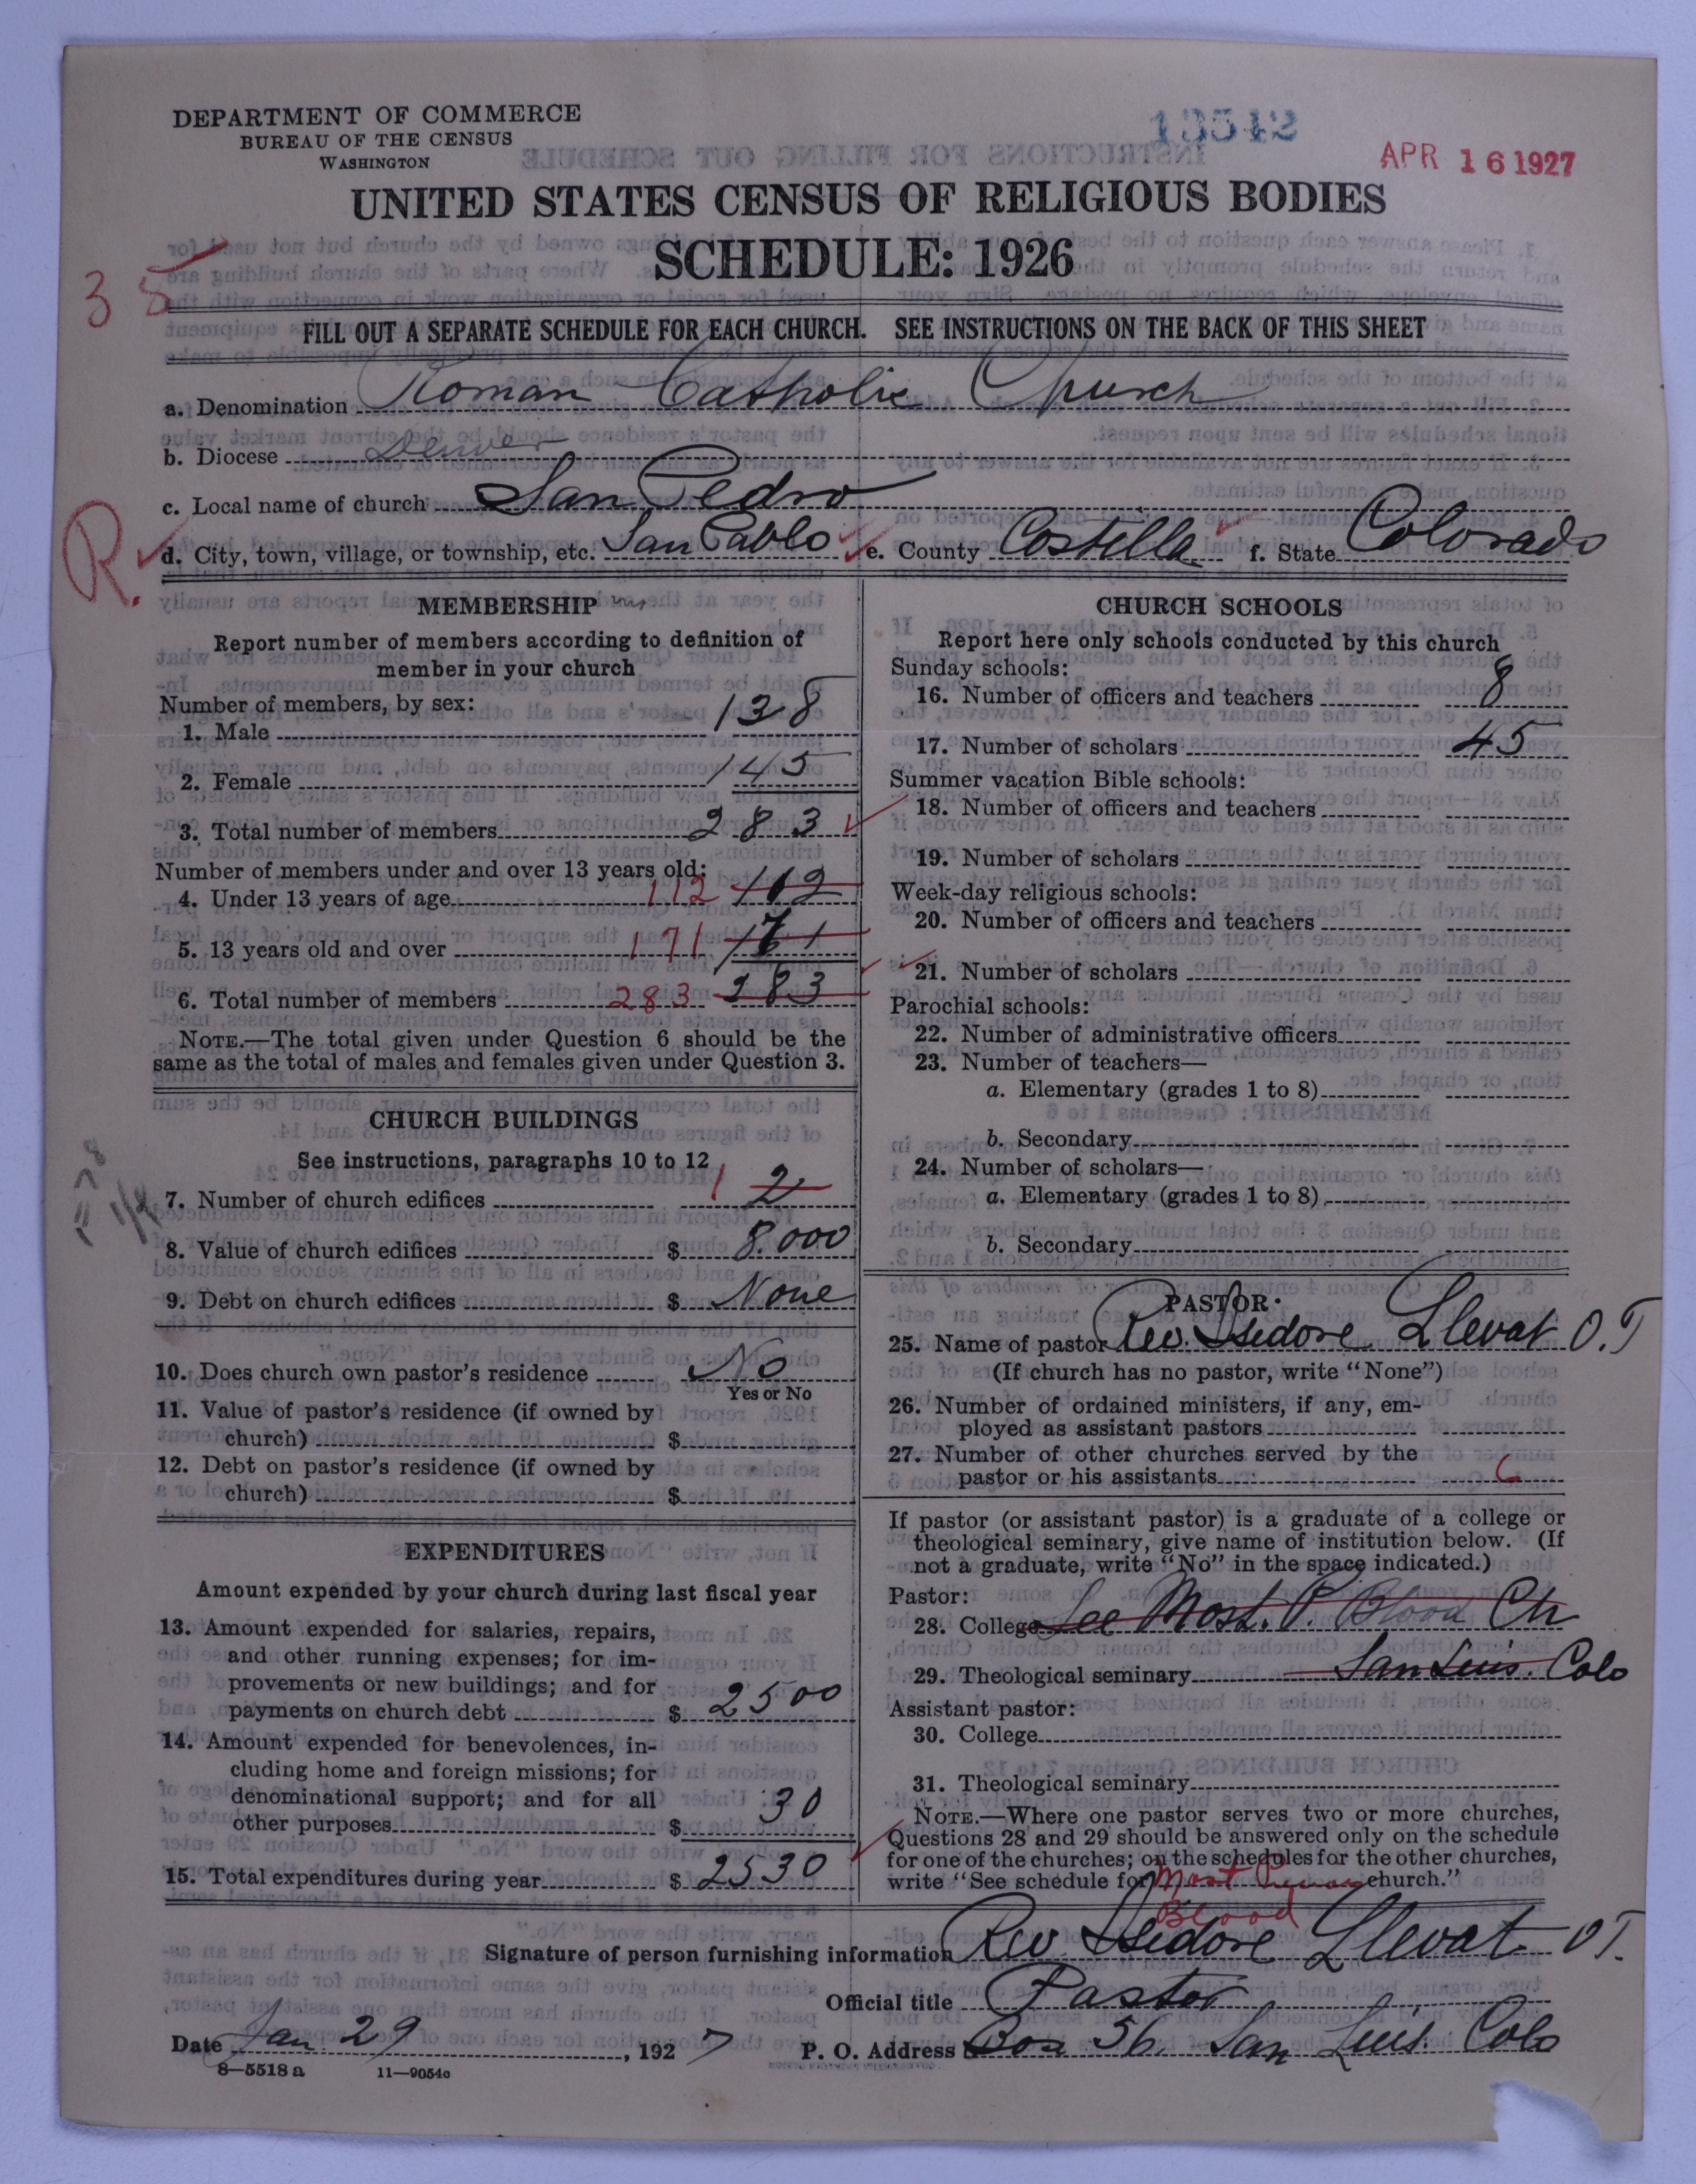 DEPARTMENT OF COMMERCE
BUREAU OF THE CENSUS
WASHINGTON
13542
APR 16 1927
UNITED STATES CENSUS OF RELIGIOUS BODIES
SCHEDULE: 1926
35
FILL OUT A SEPARATE SCHEDULE FOR EACH CHURCH. SEE INSTRUCTIONS ON THE BACK OF THIS SHEET
a. Denomination Roman Catholic Church
b. Diocese Denver
c. Local name of church San Pedro
R.
d. City, town, village, or township, etc. San Pablo e. County Costella f. State Colorado
MEMBERSHIP
Report number of members according to definition of
member in your church
Number of members, by sex:
1. Male 138
2. Female 145
3. Total number of members 283
Number of members under and over 13 years old:
4. Under 13 years of age 112 112
5. 13 years old and over 171 171
6. Total number of members 283 283
NOTE.—The total given under Question 6 should be the
same as the total of males and females given under Question 3.
CHURCH BUILDINGS
See instructions, paragraphs 10 to 12
7. Number of church edifices 1 2
8. Value of church edifices $ 8.000
9. Debt on church edifices $ None
10. Does church own pastor's residence No
Yes or No
11. Value of pastor's residence (if owned by
church) $
12. Debt on pastor's residence (if owned by
church) $
EXPENDITURES
Amount expended by your church during last fiscal year
13. Amount expended for salaries, repairs,
and other running expenses; for im-
provements or new buildings; and for
payments on church debt $ 2500
14. Amount expended for benevolences, in-
cluding home and foreign missions; for
denominational support; and for all
other purposes $ 30
15. Total expenditures during year $ 2530
CHURCH SCHOOLS
Report here only schools conducted by this church
Sunday schools:
16. Number of officers and teachers 8
17. Number of scholars 45
Summer vacation Bible schools:
18. Number of officers and teachers
19. Number of scholars
Week-day religious schools:
20. Number of officers and teachers
21. Number of scholars
Parochial schools:
22. Number of administrative officers
23. Number of teachers—
a. Elementary (grades 1 to 8)
b. Secondary
24. Number of scholars—
a. Elementary (grades 1 to 8)
b. Secondary
PASTOR
25. Name of pastor Rev. Isidore Llevat O.T
(If church has no pastor, write "None")
26. Number of ordained ministers, if any, em-
ployed as assistant pastors
27. Number of other churches served by the
pastor or his assistants 6
If pastor (or assistant pastor) is a graduate of a college or
theological seminary, give name of institution below. (If
not a graduate, write "No" in the space indicated.)
Pastor:
28. College See Most. P. Blood Ch
29. Theological seminary San Luis. Colo
Assistant pastor:
30. College
31. Theological seminary
NOTE.—Where one pastor serves two or more churches,
Questions 28 and 29 should be answered only on the schedule
for one of the churches; on the schedules for the other churches,
write "See schedule for Most Precious church."
Blood
Signature of person furnishing information Rev Isidore Llevat OT.
Official title Pastor
Date Jan 29, 1927 P. O. Address Box 56. San Luis. Colo
8—5518 a 11—9054c